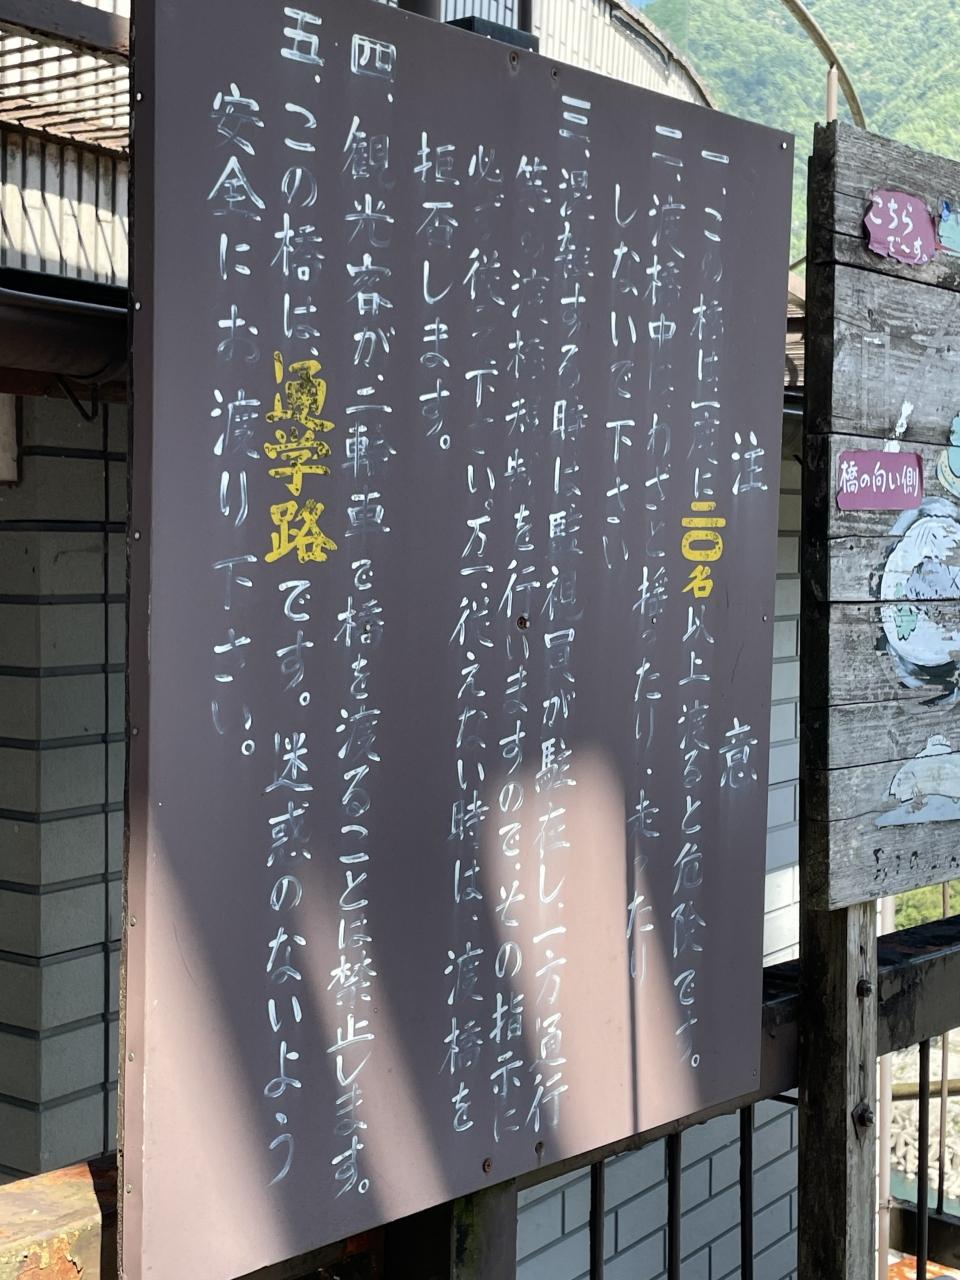 注意
一、この橋は一度に二〇名以上渡ると危険です。
二、渡橋中にわざと揺ったり・走ったり
しないで下さい
三、混雑する時は監視員が駐在し、一方通行
等の渡橋規制を行いますので、その指示に
必ず従って下さい。万一、従えない時は、渡橋を
拒否します。
四、観光客が、二輪車で橋を渡ることは禁止します。
五、この橋は、通学路です。迷惑のないよう
安全にお渡り下さい。
こちら
で〜す。
橋の向い側